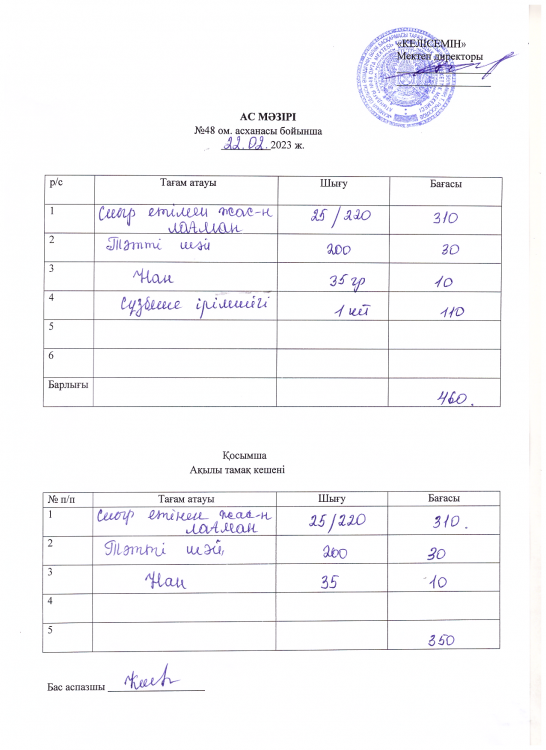 «КЕЛІСЕМІН»
Мектеп директоры
АС МӘЗІРІ
№48 ом. асханасы бойынша
22.02.2023 ж.
р/с Тағам атауы Шығу Бағасы
1 Сиыр етімен жас-н лағман 25/220 310
2 Тәтті шәй 200 30
3 Нан 35 гр 10
4 Сүзбеше ірімшігі 1 кіт 110
5
6
Барлығы 460.
Қосымша
Ақылы тамақ кешені
№ п/п Тағам атауы Шығу Бағасы
1 Сиыр етінен жас-н лағман 25/220 310.
2 Тәтті шәй 200 30
3 Нан 35 10
4
5 350
Бас аспазшы